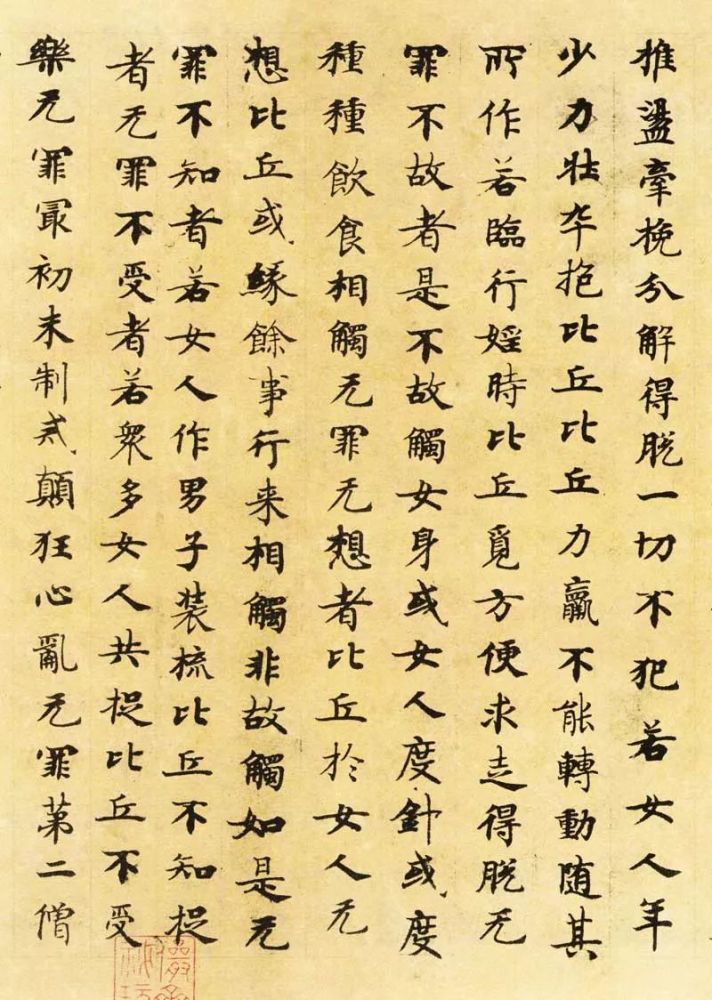 推盪牽挽分解得脱一切不犯若女人年
少力壮卒抱比丘比丘力羸不能轉動随其
所作若臨行婬時比丘覓方便求走得脱无
罪不故者是不故觸女身或女人度針或度
種種飲食相觸无罪无想者比丘於女人无
想比丘或縁餘事行来相觸非故觸如是无
罪不知者若女人作男子装梳比丘不知捉
者无罪不受者若衆多女人共捉比丘不受
樂无罪冣初未制戒顛狂心亂无罪第二僧